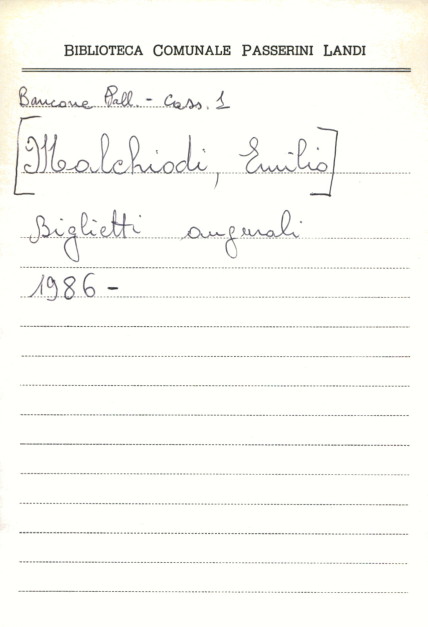 BIBLIOTECA COMUNALE PASSERINI LANDI
Bancone Pall. - Cass. 1
[Malchiodi, Emilio]
Biglietti augurali
1986 -